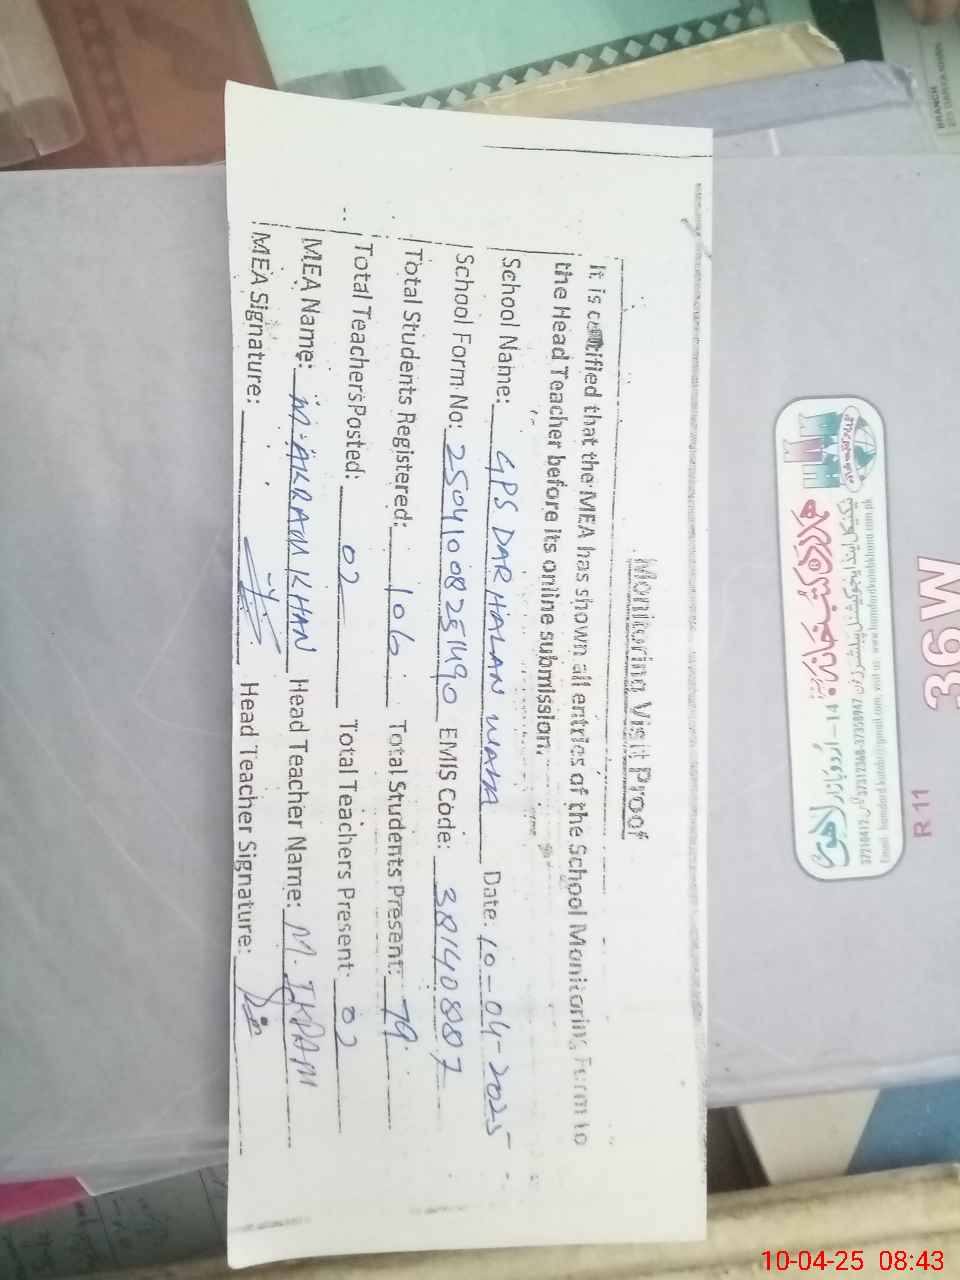 Monitoring Visit Proof
It is certified that the MEA has shown all entries of the School Monitoring Form to
the Head Teacher before its online submission.
School Name: GPS DAR HALAN WALA Date: 10-04-2025
School Form No: 25041008251490 EMIS Code: 38140887
Total Students Registered: 106 Total Students Present: 79
Total Teachers Posted: 02 Total Teachers Present: 02
MEA Name: M. AKRAM KHAN Head Teacher Name: M. IKRAM
MEA Signature: Head Teacher Signature:
ہمدرد کتب خانہ
اردو بازار لاہور
36W
R 11
BRANCH
10-04-25 08:43